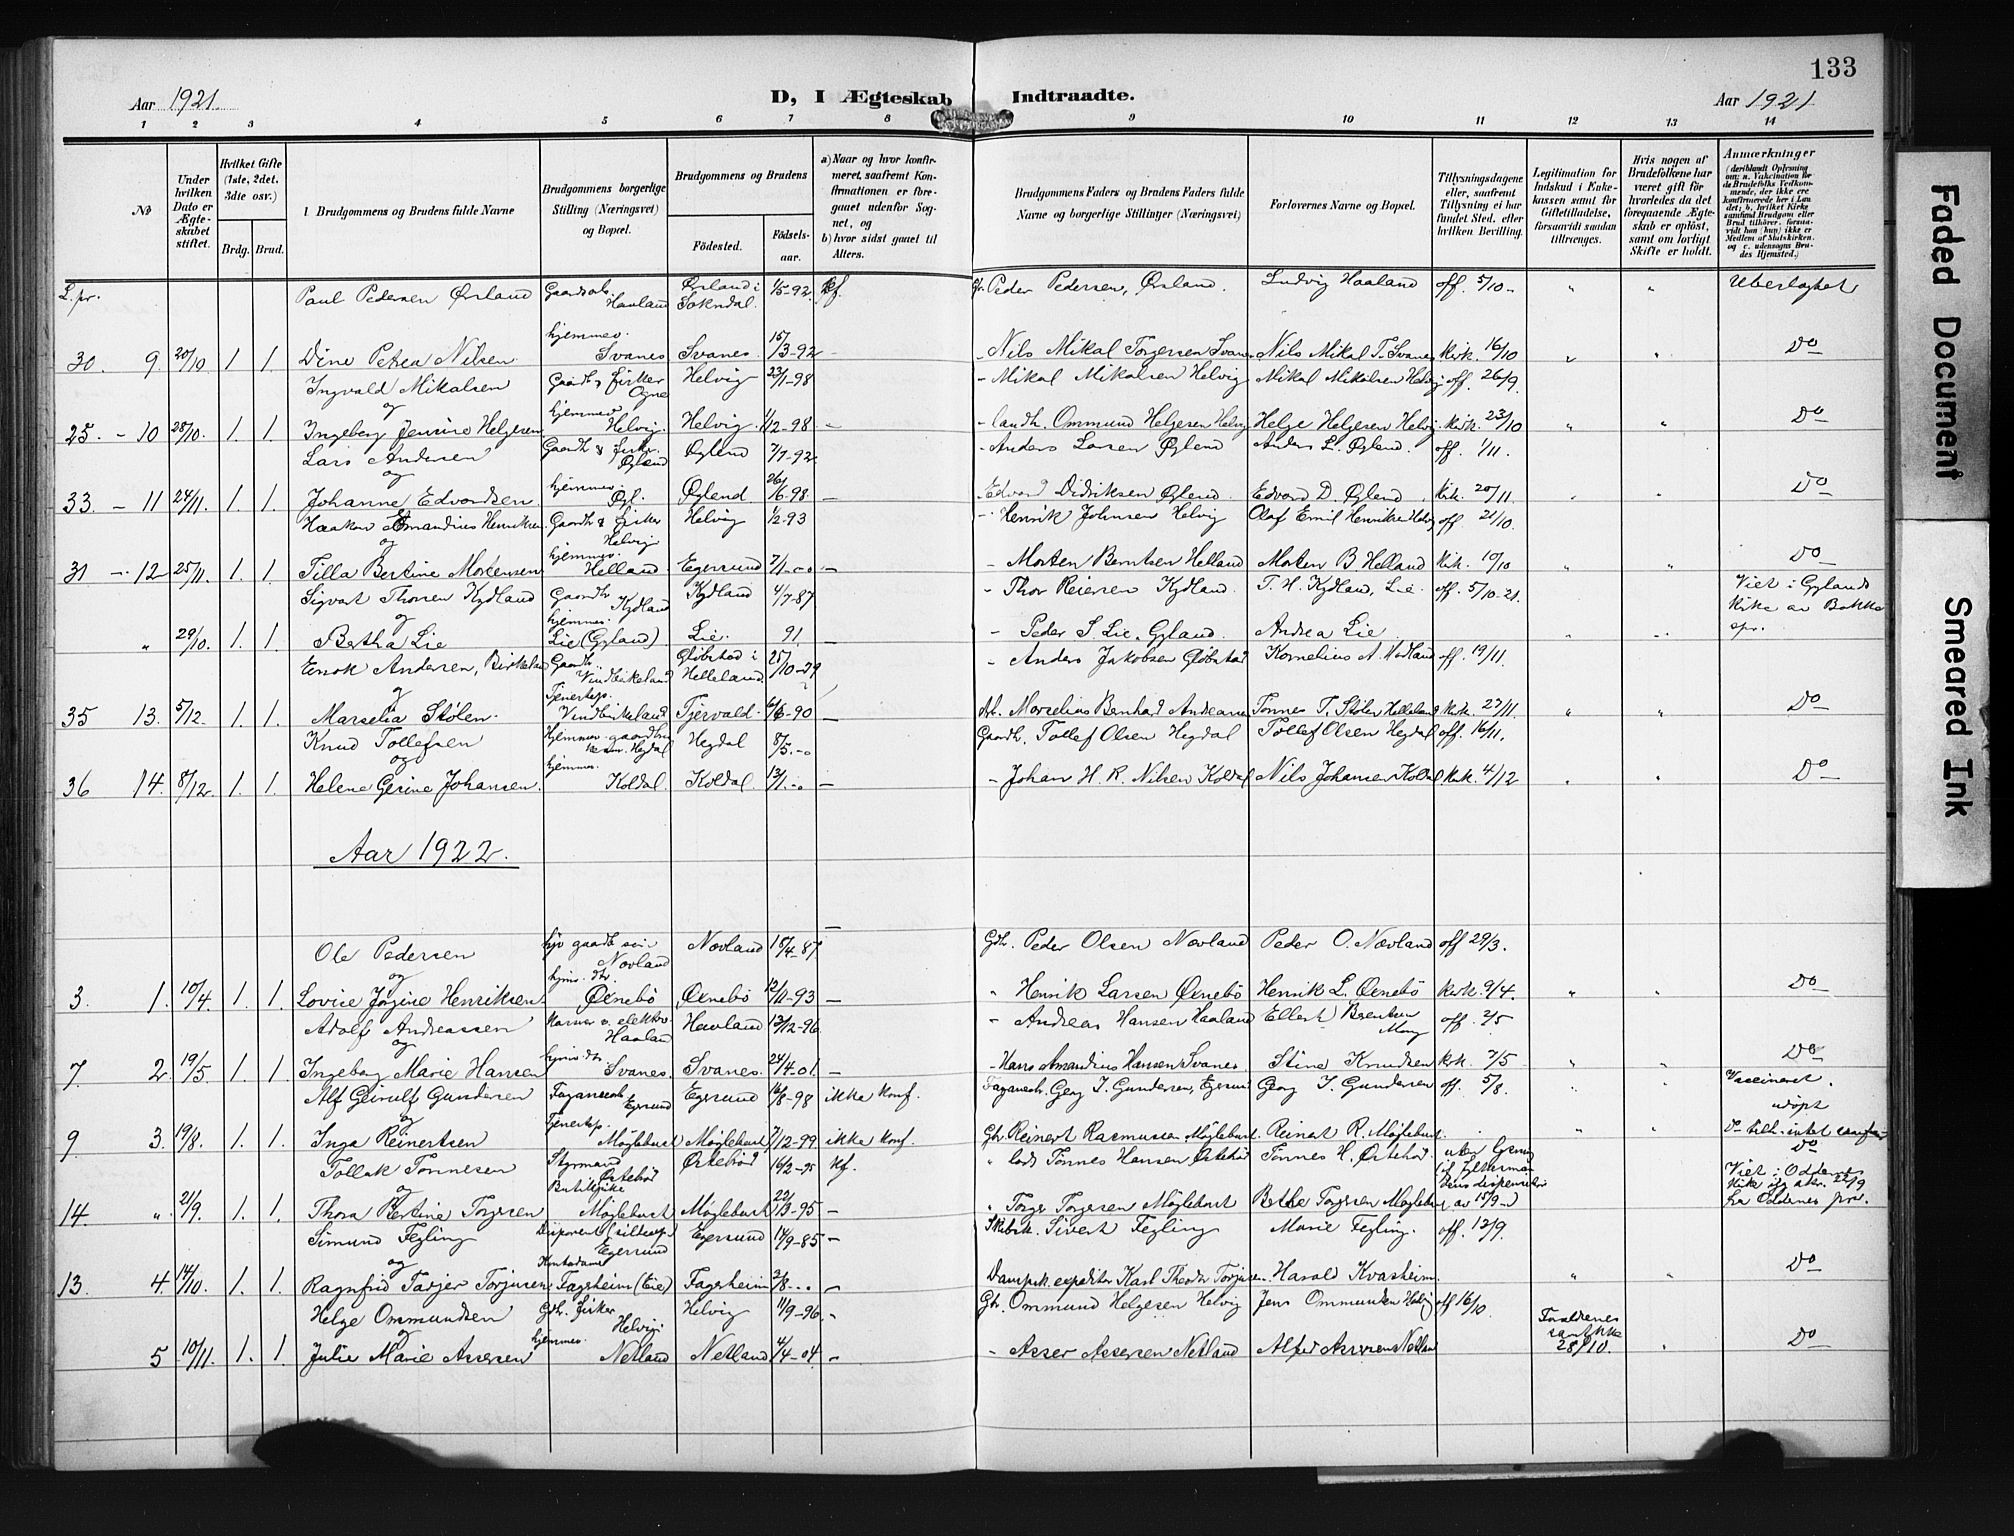 133
Aar 1921. D, I Ægteskab Indtraadte. Aar 1921
1 2 3 4 5 6 7 8 9 10 11 12 13 14
No
Under hvilken Dato er Ægteskabet stiftet.
Hvilket Gifte (1ste, 2det, 3dte osv.)
Brdg. Brud.
Brudgommens og Brudens fulde Navne
Brudgommens borgerlige Stilling (Næringsvei) og Bopæl.
Brudgommens og Brudens
Fødested. Fødselsaar.
a) Naar og hvor konfirmeret, saafremt Konfirmationen er foregaaet udenfor Sognet, og
b) hvor sidst gaaet til Alters.
Brudgommens Faders og Brudens Faders fulde Navne og borgerlige Stillinger (Næringsvei)
Forlovernes Navne og Bopæl.
Tillysningsdagene eller, saafremt Tillysning ei har fundet Sted, efter hvilken Bevilling.
Legitimation for Indskud i Enkekassen samt for Giftetilladelse, forsaavidt saadan tiltrænges.
Hvis nogen af Brudefolkene har været gift før hvorledes da det foregaaende Ægteskab er opløst, samt om lovligt Skifte er holdt.
Anmærkninger
(deriblandt Oplysning om: a. Vakcination for de Brudefolks Vedkommende, der ikke ere konfirmerede her i Landet; b. hvilket Kirkesamfund Brudgom eller Brud tilhører, forsaavidt han (hun) ikke er Medlem af Statskirken, og c. udensogns Brudes Hjemsted.)
L. pr. Paul Pedersen Ørsland Gaardarb. Haaland Ørsland i Sokndal 1/5-92 kf. Gbr. Peder Pedersen, Ørsland. Ludvig Haaland off. 5/10 - " " Uberlagtet
30. 9. 20/10 1 1 Dine Petrea Nilsen hjemmev. Svanes Svanes. 15/3-92 - - Nils Mikal Torgersen Svanes Nils Mikal T. Svanes kirk. 16/10 " " Do
Ingvald Mikalsen Gaardb & fisker Ogne Helvig 23/1-98 - Mikal Mikalsen Helvig Mikal Mikalsen Helvig off. 26/9.
og
25. - 10 28/10. 1. 1. Ingeborg Jensine Helgesen hjemmev Helvig. Helvig. 1/12-98 - - Ommund Helgesen Helvig Helge Helgesen Helvig kirk. 23/10 " " Do
Lars Andersen Gaardb & fisker. Øglænd Øglend 7/7-92 - Anders Larsen Øglend Anders L. Øglend. off. 1/11.
og
33. - 11 24/11. 1. 1. Johanne Edvardsen hjemmev. Øgl. Øglend 26/6.98. - Edvard Didriksen Øglend. Edvard D. Øglend kirk. 20/11. " " Do
Haakon Amandius Henriksen Gaardb & fisker Helvig Helvig 1/2-93 - Henrik Johnsen Helvig Olaf Emil Henriksen Helvig off. 21/10.
og
31 - 12 25/11. 1. 1. Tilla Bertine Mortensen hjemmev. Helland Egersund 7/1-00 - - Morten Berntsen Helland Morten B. Helland kirk. 10/10 " " Do
Sigvart Thorsen Kydland Gaardbr Kydland Kydland 4/7-87 - Thor Reiersen Kydland. T. H. Kydland, Lie. off. 5/10-21. Viet i Gylands
og Kirke av Bakke
" 29/10. 1. 1. Bertha Lie hjemmev. Lie (Gyland) Lie. 91 - - Peder S. Lie. Gyland. Andrea Lie " " spr.
Enok Andersen, Birkeland Gaardb. Vindbirkeland Gløbstad i Helleland. 25/10-79 - Anders Jakobsen Gløbstad Kornelius A. Hadland off. 19/11.
og
35 13. 5/12. 1. 1. Marselia Stølen. Tjenertøs. Vindbirkeland Tjervald. 6/6-90 - Ab. Marselius Bernhard Andreasen Tønnes T. Stølen Helleland kirk. 27/11. " " Do
Knud Tollefsen Hjemmev. gaardbr. Hegdal Hegdal 8/5.-. Gaardb. Tollef Olsen Hegdal Tollef Olsen Hegdal off. 16/11.
og
36 14. 8/12. 1. 1. Helene Gesine Johansen. hjemmev. Koldal. Koldal. 13/1.-. - - Johan H. R. Nilsen Koldal Nils Johansen Koldal kirk. 4/12 " " Do
Aar 1922.
Ole Pedersen hjv gaardb søn Novland Novland 15/4-87 Gdb. Peder Olsen Novland Peder O. Novland off 29/3.
og
3. 1. 10/4. 1. 1. Lovise Jørgine Henriksen. hjmv. dtr. Øenebø Øenebø 12/11-93 - " Henrik Larsen Øenebø Henrik L. Øenebø kirk. 9/4. " " Do
Adolf Andreassen v. elektr. Haaland Havland 13/12-96 " Andreas Hansen Haaland Ellert Berentsen off. 2/5
og
7. 2. 19/5. 1. 1. Ingeborg Marie Hansen hjmv. dtr. Svanes. Svanes. 24/4.01. - - Hans Amandius Hansen Svanes Stine Knudsen kirk. 7/5 " " Do
Alf Geirulf Gundersen Fajancearb. Egersund Egersund 16/8-98 ikke konf. Fajancearb. Georg I. Gundersen, Egersund Georg I. Gundersen off. 5/8. " " Vaccineret.
og udøpt
9. 3. 19/8. 1. 1. Inga Reinertsen Tjenertøs. Møglebust Møglebust 7/12-99 ikke konf. Gbr. Reinert Rasmussen Møglebust. Reinert R. Møglebust. " " Do tilh. intet samf.
Tollak Tønnesen Styrmand Østebød Østebød 16/2-95 kf. " lods Tønnes Hansen Østebød. Tønnes H. Østebød. Do
og Butikpike Viet i Oddernes
14. " 21/9. 1. 1. Thora Bertine Torgersen Møglebust Møglebust 22/3-95 - " Torger Torgersen Møglebust Bethe Torgersen Møglebust av 15/9 fra Oddernes pr.
Simund Fegling Egersund Egersund 14/9-85 - Skibsk. Sivert Fegling Marie Fegling. off. 12/9.
og
13. 4. 14/10. 1. 1. Ragnfrid Tarjer Torjusen Kontordame Fagerheim (Eie) Fagerheim 2/8-.. - Dampsk. expeditør Karl Theodor Torjusen. Harald Kvasheim. " " Do
Helge Ommundsen Gdb. fisker Helvig. Helvig 11/9-96. - Gbr. Ommund Helgesen Helvig Jens Ommundsen Helvig off 16/10
og Forældrenes samtykke
5 10/11. 1. 1. Julie Marie Assersen hjemmev. Netland Netland 4/4-04. - - Asser Assersen Netland Alfred Assersen Netland 28/10. " Do
Faded Document
Smeared Ink